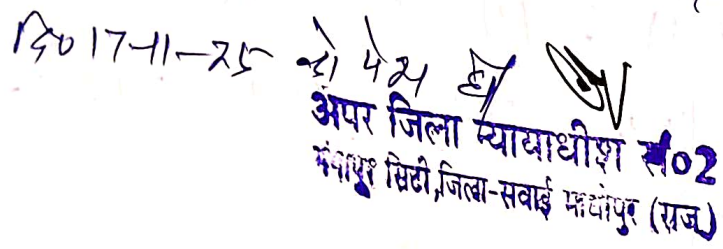 दि० 17-11-25 को पेश हो
अपर जिला न्यायाधीश सं०2
गंगापुर सिटी,जिला-सवाई माधोपुर (राज)